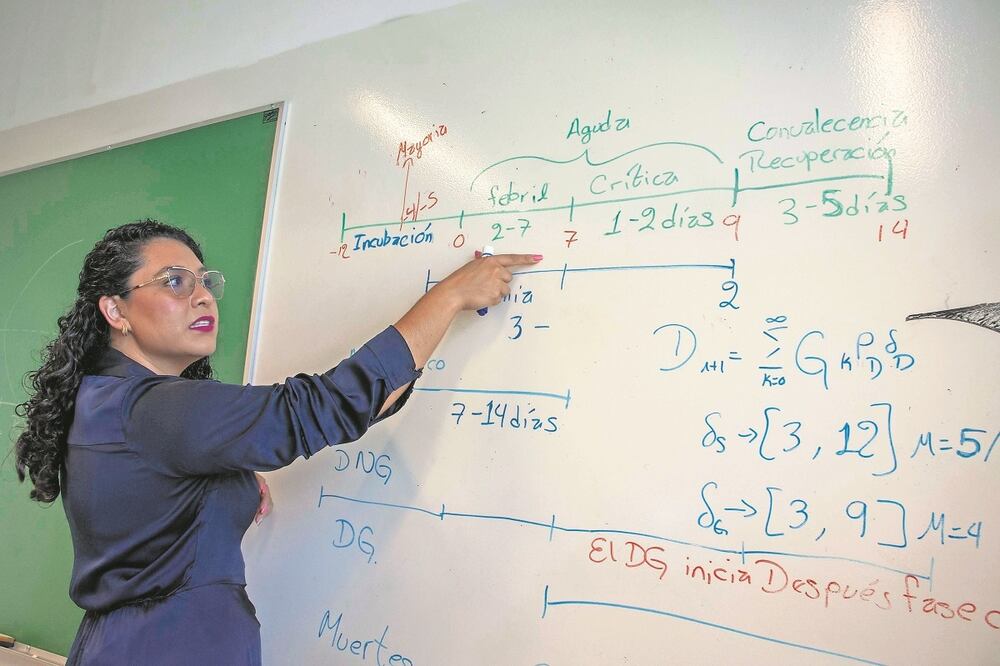 Mayoria
Aguda
Convalecencia
Recuperación
4/-5
febril
Crítica
-12
Incubación
0
2-7
7
1-2 días
9
3-5 días
14
3 -
2
D n+1 = ∞ Σ k=0 G K P D δ D
7-14 días
δs → [3, 12] M=5/
DNG
δG → [3, 9] M=4
DG.
El DG inicia Después fase c
Muertes